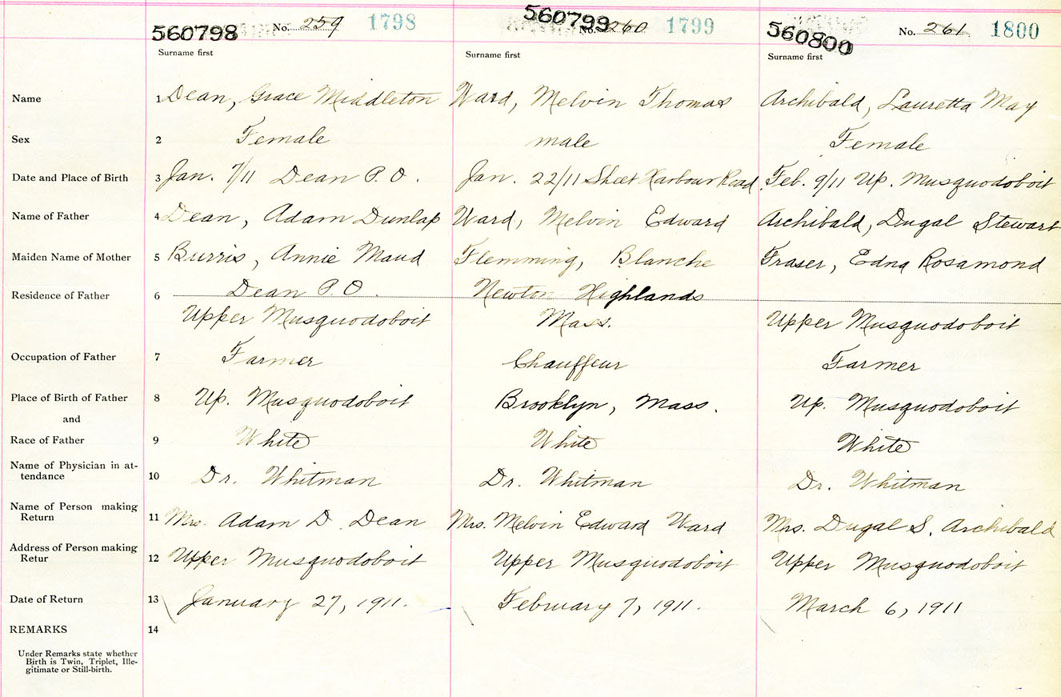 560798 No. 259 1798 560799 No. 260 1799 560800 No. 261 1800
Surname first Surname first Surname first
Name 1 Dean, Grace Middleton Ward, Melvin Thomas Archibald, Lauretta May
Sex 2 Female male Female
Date and Place of Birth 3 Jan. 7/11 Dean P.O. Jan. 22/11 Sheet Harbour Road Feb. 9/11 Up. Musquodoboit
Name of Father 4 Dean, Adam Dunlap Ward, Melvin Edward Archibald, Dugal Stewart
Maiden Name of Mother 5 Burris, Annie Maud Flemming, Blanche Fraser, Edna Rosamond
Residence of Father 6 Dean P.O. Newton Highlands
Upper Musquodoboit Mass. Upper Musquodoboit
Occupation of Father 7 Farmer Chauffeur Farmer
Place of Birth of Father 8 Up. Musquodoboit Brooklyn, Mass. Up. Musquodoboit
and
Race of Father 9 White White White
Name of Physician in at-
tendance 10 Dr. Whitman Dr. Whitman Dr. Whitman
Name of Person making
Return 11 Mrs. Adam D. Dean Mrs. Melvin Edward Ward Mrs. Dugal S. Archibald
Address of Person making
Retur 12 Upper Musquodoboit Upper Musquodoboit Upper Musquodoboit
Date of Return 13 January 27, 1911. February 7, 1911. March 6, 1911
REMARKS 14
Under Remarks state whether
Birth is Twin, Triplet, Ille-
gitimate or Still-birth.